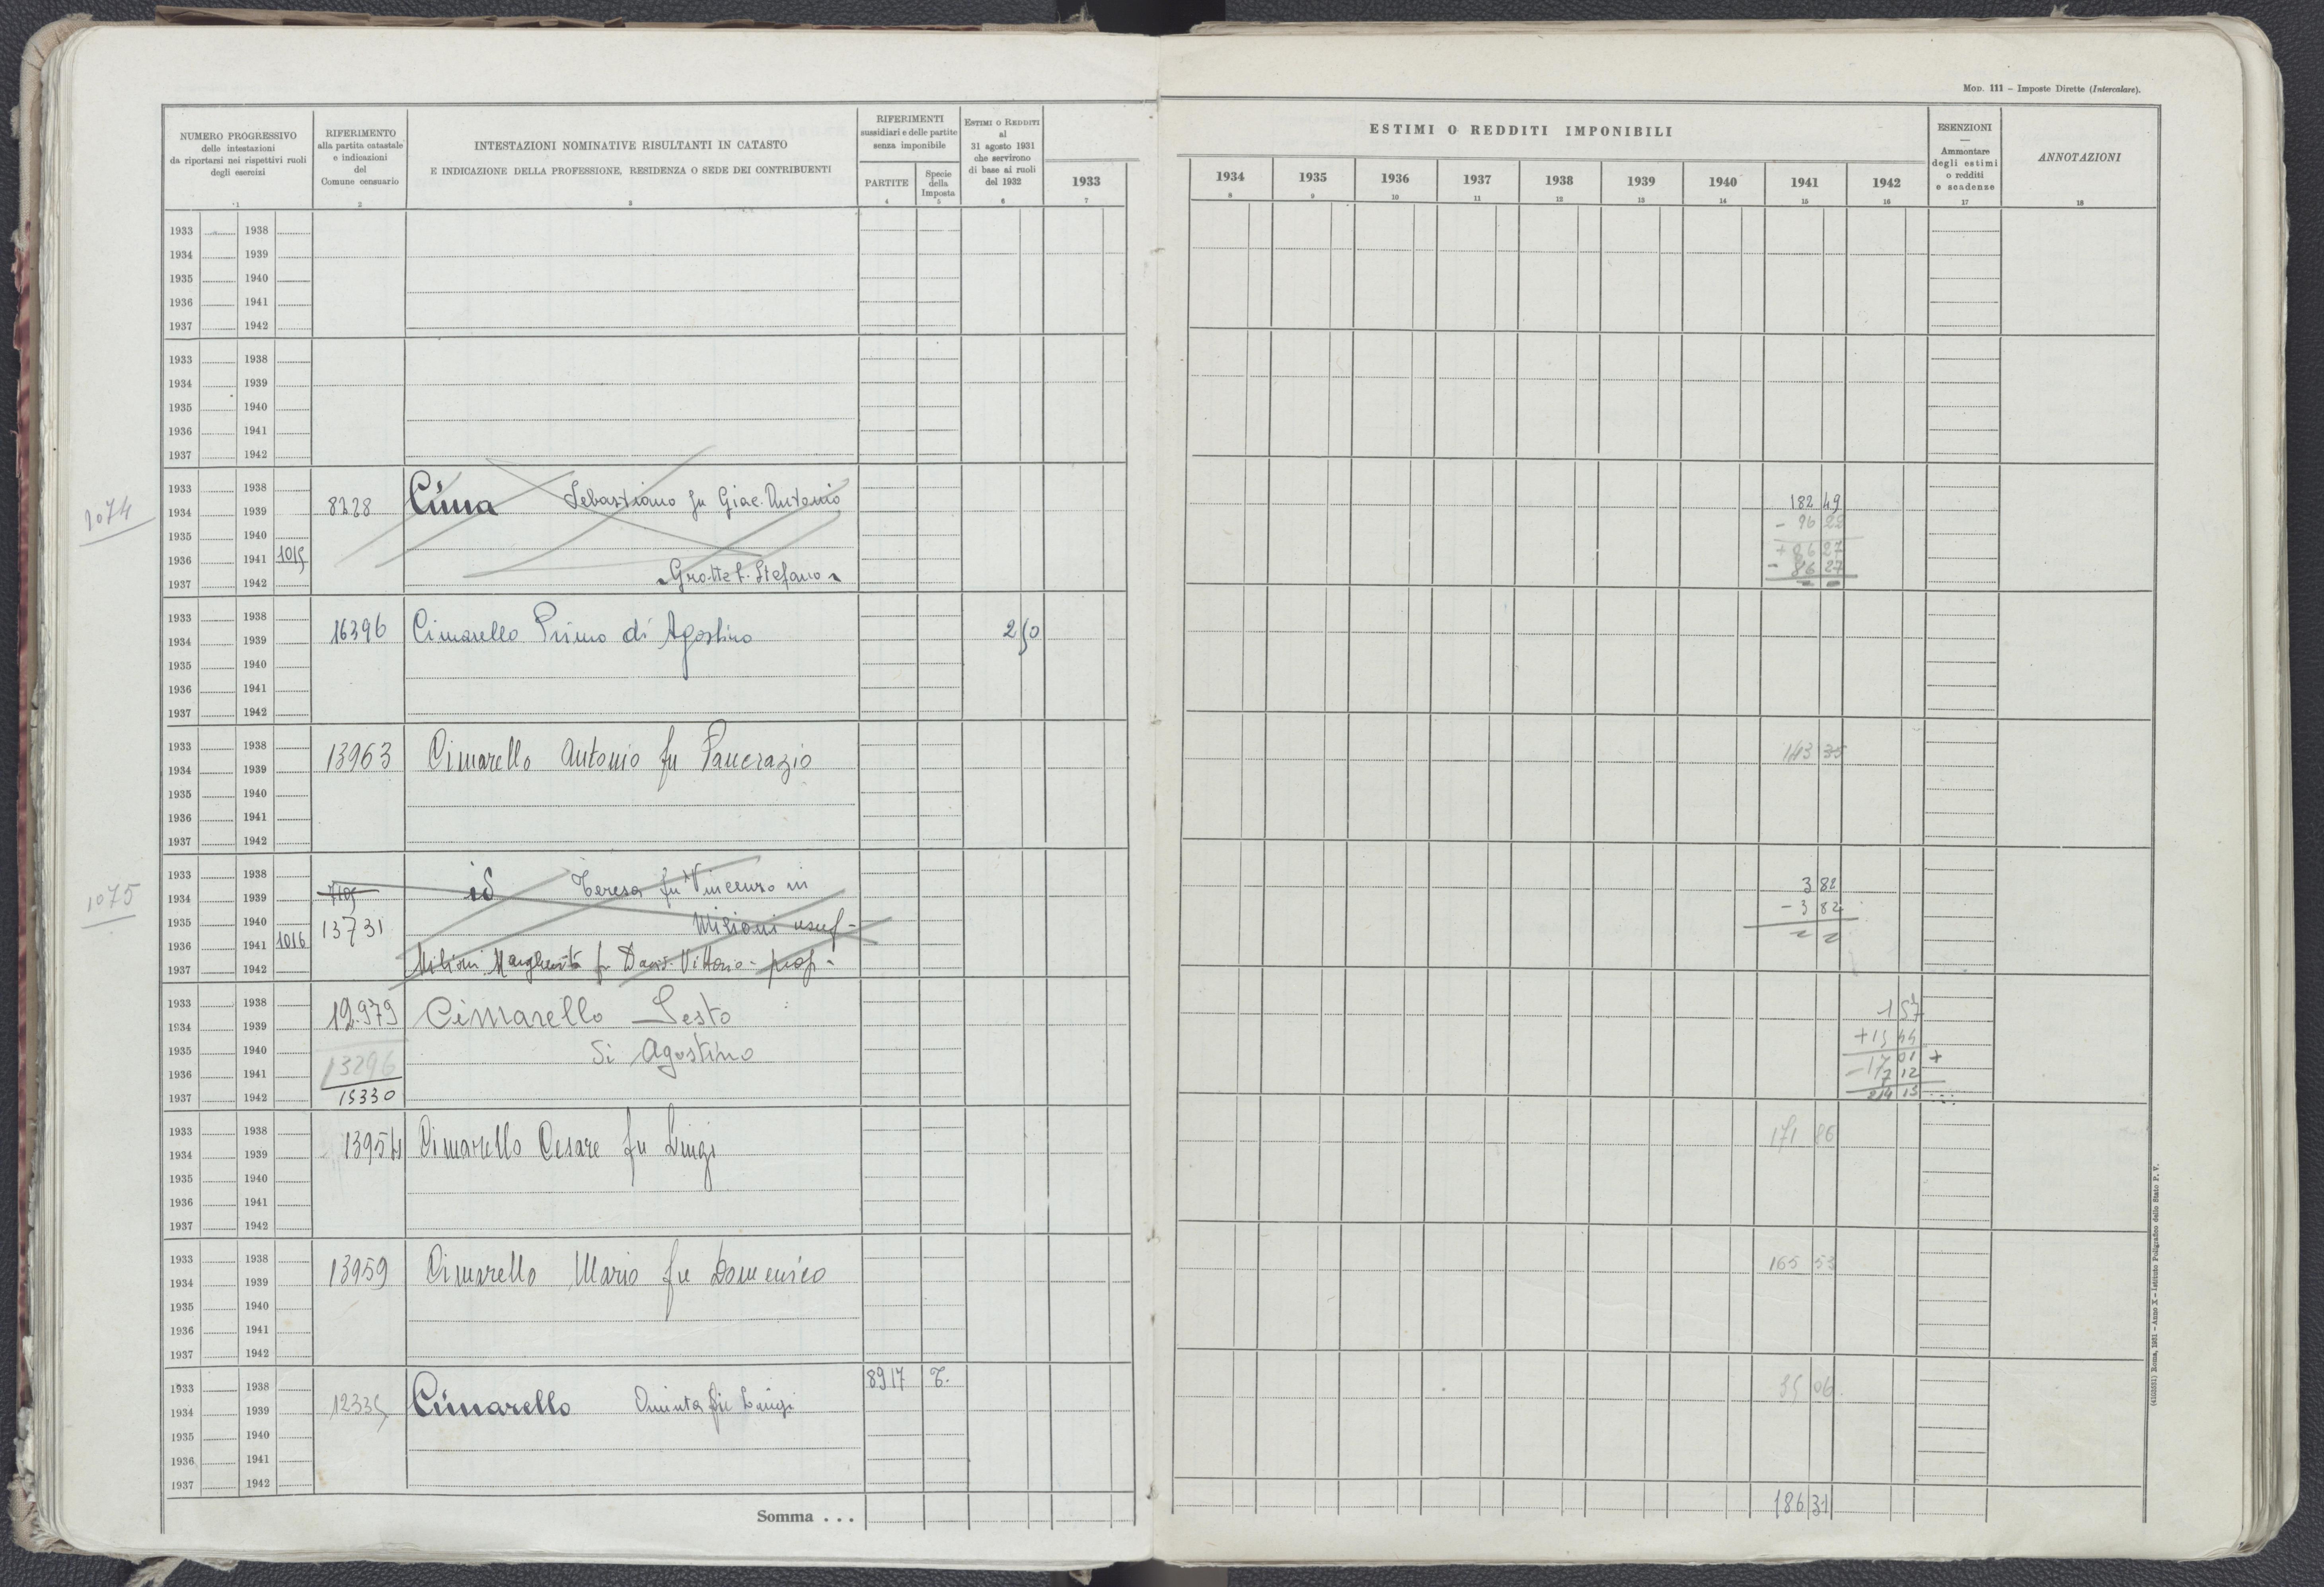 MOD. 111 – Imposte Dirette (Intercalare).
NUMERO PROGRESSIVO
delle intestazioni
da riportarsi nei rispettivi ruoli
degli esercizi
1
RIFERIMENTO
alla partita catastale
e indicazioni
del
Comune censuario
2
INTESTAZIONI NOMINATIVE RISULTANTI IN CATASTO
E INDICAZIONE DELLA PROFESSIONE, RESIDENZA O SEDE DEI CONTRIBUENTI
3
RIFERIMENTI
sussidiari e delle partite
senza imponibile
PARTITE
4
Specie
della
Imposta
5
ESTIMI O REDDITI
al
31 agosto 1931
che servirono
di base ai ruoli
del 1932
6
1933
7
ESTIMI O REDDITI IMPONIBILI
1934 1935 1936 1937 1938 1939 1940 1941 1942
8 9 10 11 12 13 14 15 16
ESENZIONI
—
Ammontare
degli estimi
o redditi
e scadenze
17
ANNOTAZIONI
18
1933 1938
1934 1939
1935 1940
1936 1941
1937 1942
1933 1938
1934 1939
1935 1940
1936 1941
1937 1942
1074
1933 1938
1934 1939 8228 Cima Sebastiano fu Giac. Antonio 182 49
1935 1940 - 96 22
1936 1941 1015 + 86 27
1937 1942 Grotte S. Stefano - 86 27
1933 1938
1934 1939 16396 Cimarello Primo di Agostino 2 50
1935 1940
1936 1941
1937 1942
1933 1938
1934 1939 13963 Cimarello Antonio fu Pancrazio 143 35
1935 1940
1936 1941
1937 1942
1075
1933 1938
1934 1939 id Teresa fu Vincenzo in 3 82
1935 1940 13731 Milioni usuf - - 3 82
1936 1941 1016
1937 1942 Milioni Margherita fu Dav. Vittorio - prop -
1933 1938
1934 1939 12.979 Cimarello Sesto 1 57
1935 1940 13296 di Agostino + 15 44
1936 1941 17 01 +
1937 1942 15330
1933 1938
1934 1939 13954 Cimarello Cesare fu Luigi 171 86
1935 1940
1936 1941
1937 1942
1933 1938
1934 1939 13959 Cimarello Mario fu Domenico 165 53
1935 1940
1936 1941
1937 1942
1933 1938 8917 T.
1934 1939 12335 Cimarello Quinta fu Luigi 35 06
1935 1940
1936 1941
1937 1942
Somma . . . 186 31
(4103551) Roma, 1931 – Anno X – Istituto Poligrafico dello Stato P. V.